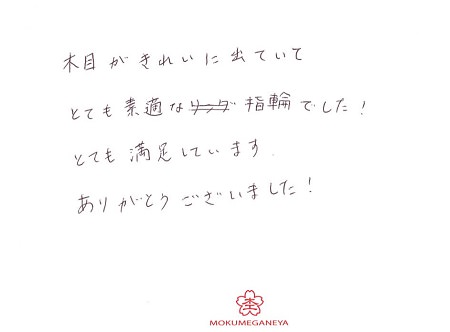 木目がきれいに出ていて
とても素適なリング指輪でした!
とても満足しています.
ありがとうございました!
MOKUMEGANEYA